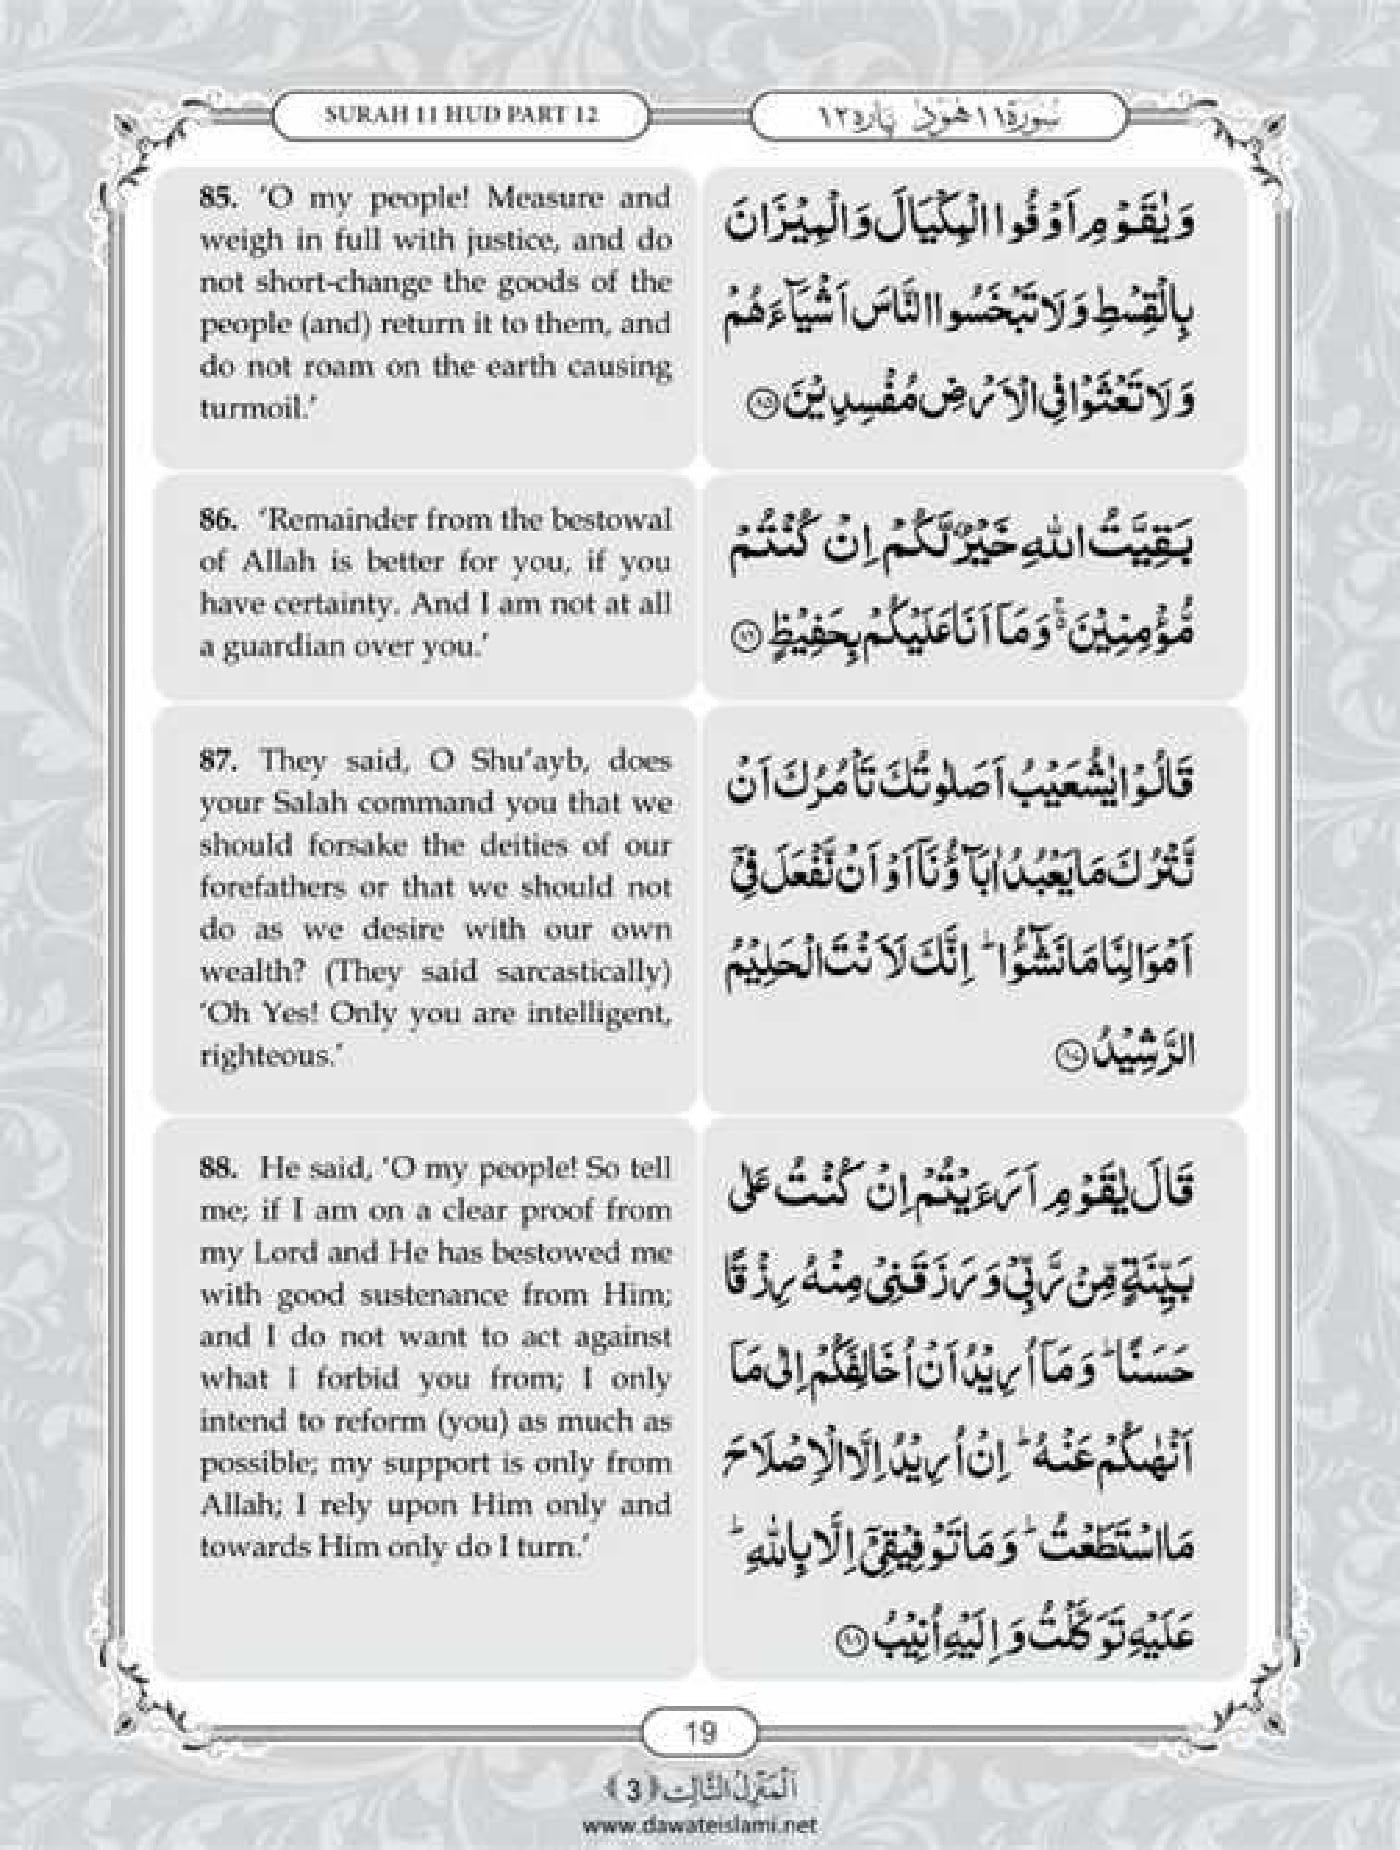 SURAH 11 HUD PART 12
سُورَة ١١ هُوْد پاره ١٢
85. ‘O my people! Measure and
weigh in full with justice, and do
not short-change the goods of the
people (and) return it to them, and
do not roam on the earth causing
turmoil.’
وَيٰقَوْمِ اَوْفُوا الْمِكْيَالَ وَالْمِيْزَانَ
بِالْقِسْطِ وَلَا تَبْخَسُوا النَّاسَ اَشْيَآءَهُمْ
وَلَا تَعْثَوْا فِي الْاَرْضِ مُفْسِدِيْنَ ﴿٨٥﴾
86. ‘Remainder from the bestowal
of Allah is better for you, if you
have certainty. And I am not at all
a guardian over you.’
بَقِيَّتُ اللّٰهِ خَيْرٌ لَّكُمْ اِنْ كُنْتُمْ
مُّؤْمِنِيْنَ ۚ۬ وَمَآ اَنَا عَلَيْكُمْ بِحَفِيْظٍ ﴿٨٦﴾
87. They said, O Shu’ayb, does
your Salah command you that we
should forsake the deities of our
forefathers or that we should not
do as we desire with our own
wealth? (They said sarcastically)
‘Oh Yes! Only you are intelligent,
righteous.’
قَالُوْا يٰشُعَيْبُ اَصَلٰوتُكَ تَاْمُرُكَ اَنْ
نَّتْرُكَ مَا يَعْبُدُ اٰبَآؤُنَآ اَوْ اَنْ نَّفْعَلَ فِيْٓ
اَمْوَالِنَا مَا نَشٰٓؤُا ؕ اِنَّكَ لَاَنْتَ الْحَلِيْمُ
الرَّشِيْدُ ﴿٨٧﴾
88. He said, ‘O my people! So tell
me; if I am on a clear proof from
my Lord and He has bestowed me
with good sustenance from Him;
and I do not want to act against
what I forbid you from; I only
intend to reform (you) as much as
possible; my support is only from
Allah; I rely upon Him only and
towards Him only do I turn.’
قَالَ يٰقَوْمِ اَرَءَيْتُمْ اِنْ كُنْتُ عَلٰى
بَيِّنَةٍ مِّنْ رَّبِّيْ وَرَزَقَنِيْ مِنْهُ رِزْقًا
حَسَنًا ؕ وَمَآ اُرِيْدُ اَنْ اُخَالِفَكُمْ اِلٰى مَآ
اَنْهٰىكُمْ عَنْهُ ؕ اِنْ اُرِيْدُ اِلَّا الْاِصْلَاحَ
مَا اسْتَطَعْتُ ؕ وَمَا تَوْفِيْقِيْٓ اِلَّا بِاللّٰهِ ؕ
عَلَيْهِ تَوَكَّلْتُ وَاِلَيْهِ اُنِيْبُ ﴿٨٨﴾
19
اَلْمَنْزِلُ الثَّالِث ﴿3﴾
www.dawateislami.net